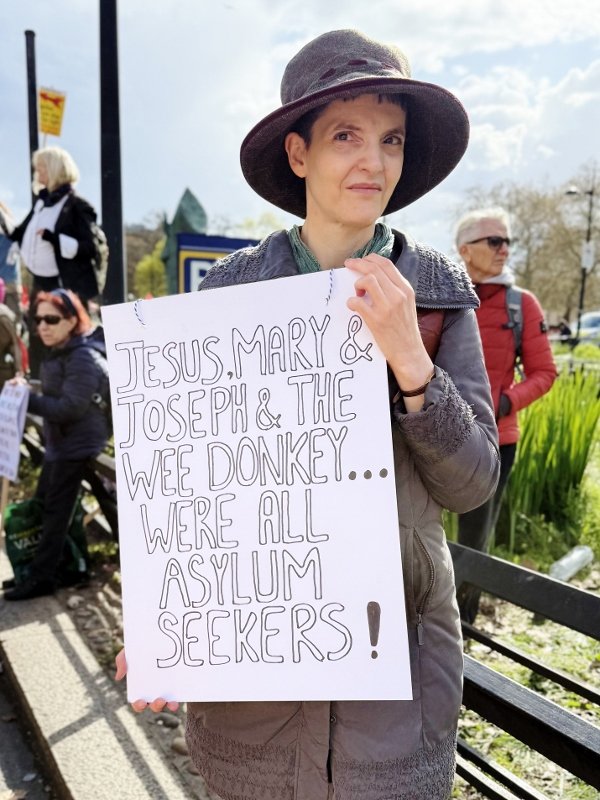 JESUS, MARY &
JOSEPH & THE
WEE DONKEY...
WERE ALL
ASYLUM
SEEKERS!